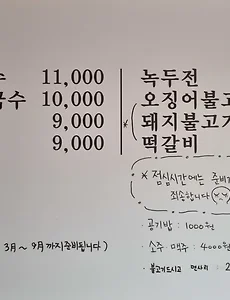 수 11,000 녹두전
국수 10,000 오징어불고
9,000 돼지불고기
9,000 떡갈비
* 점심시간에는 준비가
죄송합니다
· 공기밥 : 1000원
3月 ~ 9月까지준비됩니다)
· 소주 맥주 : 4000원
· 불고기드시고 면사리 : 2